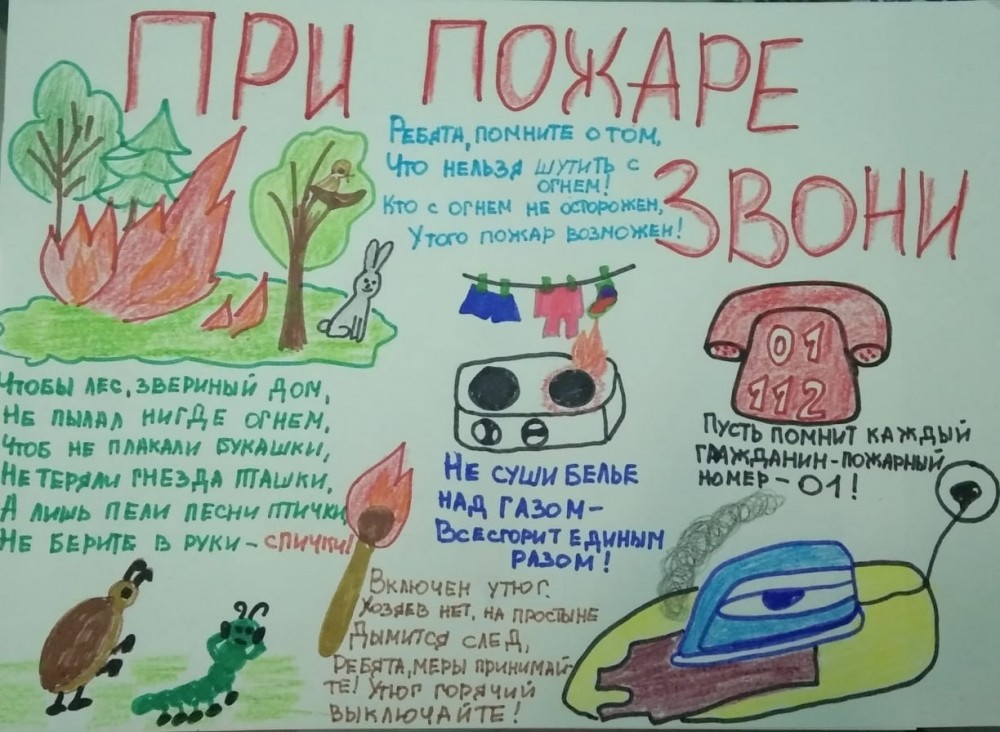 ПРИ ПОЖАРЕ
ЗВОНИ
РЕБЯТА, ПОМНИТЕ О ТОМ,
ЧТО НЕЛЬЗЯ ШУТИТЬ С
ОГНЕМ!
КТО С ОГНЕМ НЕ ОСТОРОЖЕН,
У ТОГО ПОЖАР ВОЗМОЖЕН!
01
112
ПУСТЬ ПОМНИТ КАЖДЫЙ
ГРАЖДАНИН-ПОЖАРНЫЙ
НОМЕР - 01!
ЧТОБЫ ЛЕС, ЗВЕРИНЫЙ ДОМ,
НЕ ПЫЛАЛ НИГДЕ ОГНЕМ,
ЧТОБ НЕ ПЛАКАЛИ БУКАШКИ,
НЕ ТЕРЯЛИ ГНЕЗДА ПТАШКИ,
А ЛИШЬ ПЕЛИ ПЕСНИ ПТИЧКИ
НЕ БЕРИТЕ В РУКИ - СПИЧКИ!
НЕ СУШИ БЕЛЬЕ
НАД ГАЗОМ -
ВСЕ СГОРИТ ЕДИНЫМ
РАЗОМ!
ВКЛЮЧЕН УТЮГ.
ХОЗЯЕВ НЕТ, НА ПРОСТЫНЕ
ДЫМИТСЯ СЛЕД,
РЕБЯТА, МЕРЫ ПРИНИМАЙ-
ТЕ! УТЮГ ГОРЯЧИЙ
ВЫКЛЮЧАЙТЕ!